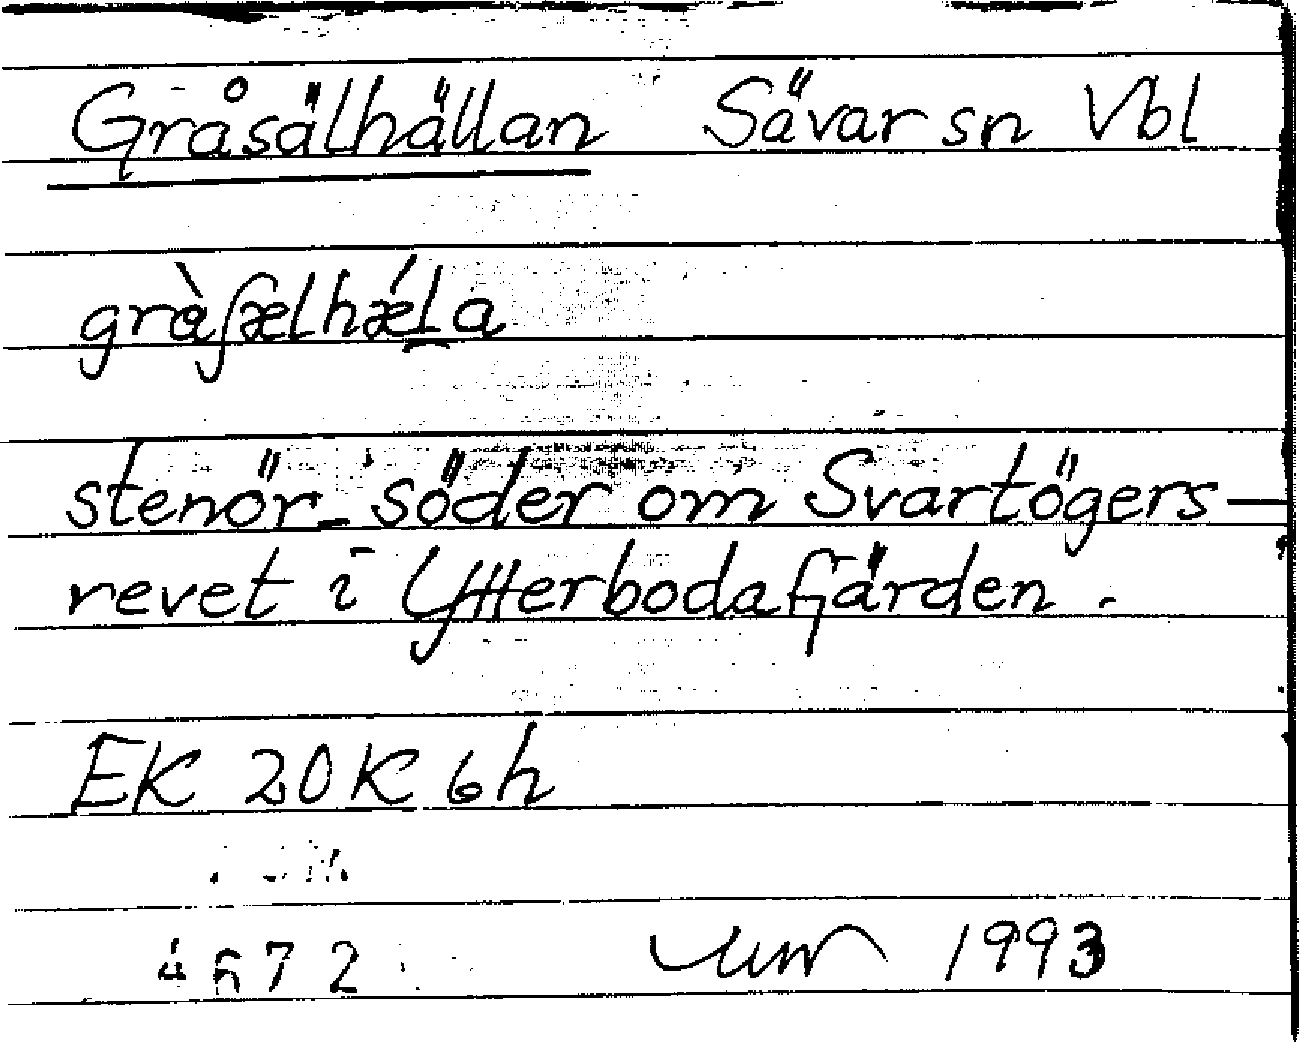 Gråsälhällan Sävar sn Vbl
gràſælhǽla
stenör söder om Svartögers-
revet i Ytterbodafjärden.
EK 20K 6h
1993